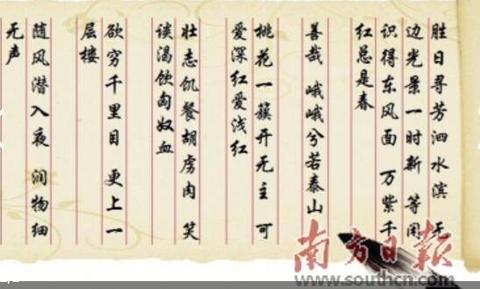 胜日寻芳泗水滨 无
边光景一时新 等闲
识得东风面 万紫千
红总是春
善哉 峨峨兮若泰山
桃花一簇开无主 可
爱深红爱浅红
壮志饥餐胡虏肉 笑
谈渴饮匈奴血
欲穷千里目 更上一
层楼
随风潜入夜 润物细
无声
南方日報
www.southcn.com